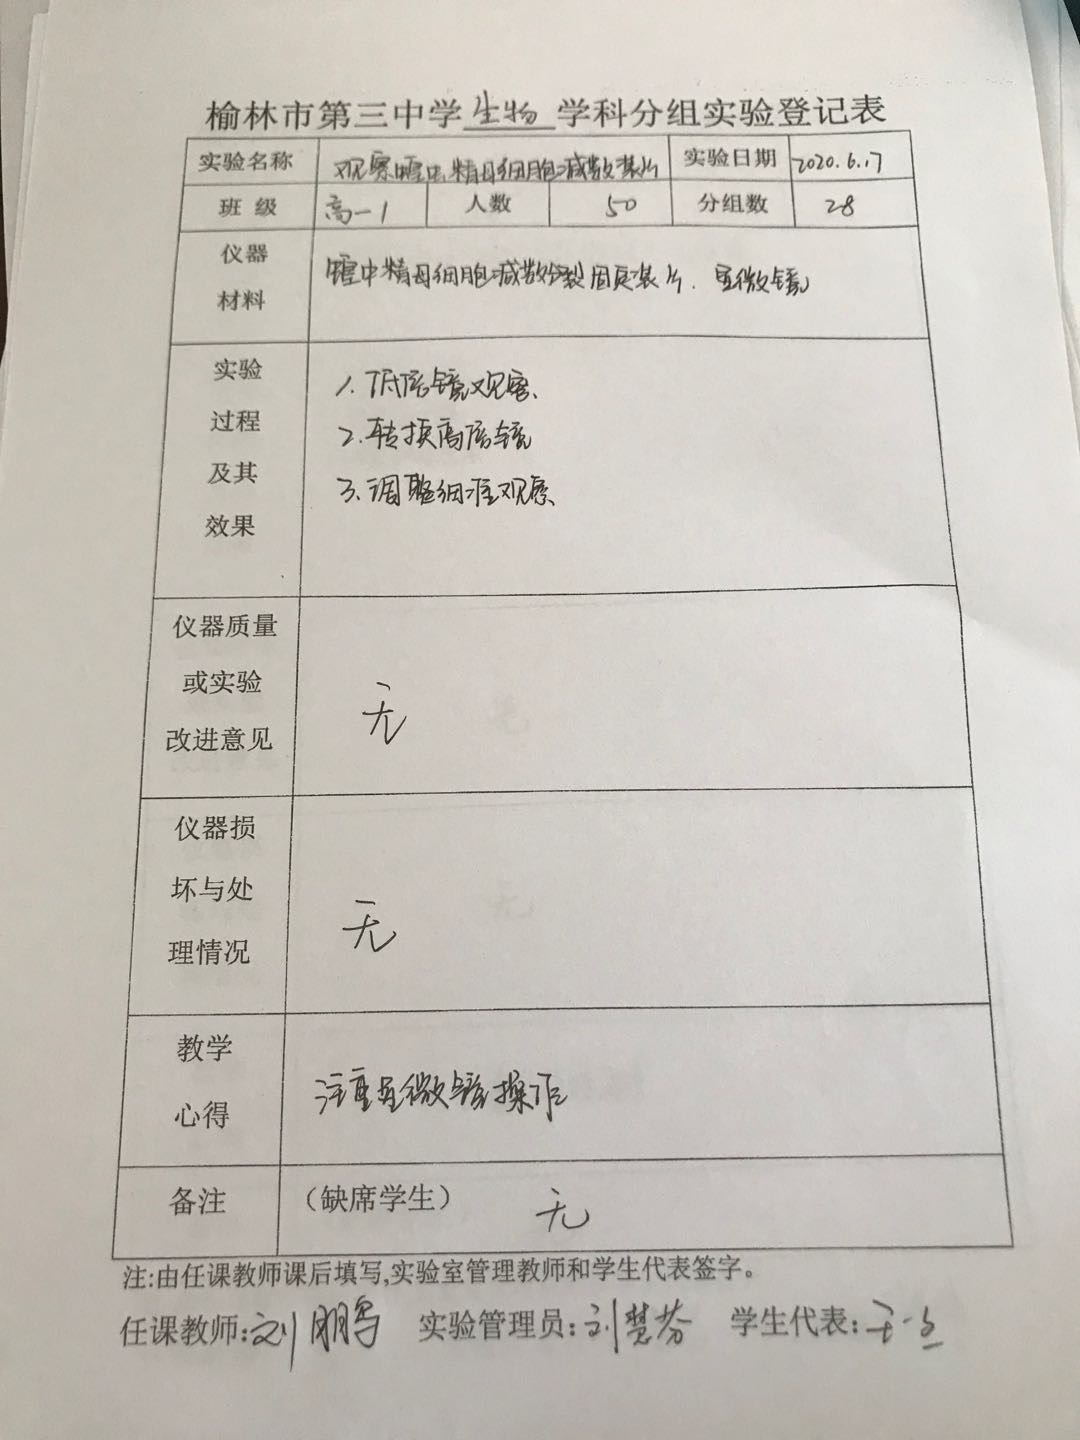 榆林市第三中学生物学科分组实验登记表
实验名称 观察蝗虫精母细胞减数装片 实验日期 2020.6.17
班级 高一1 人数 50 分组数 28
仪器
材料
蝗虫精母细胞减数分裂固定装片、显微镜
实验
过程
及其
效果
1.低倍镜观察、
2.转换高倍镜
3.调整细准观察、
仪器质量
或实验
改进意见
无
仪器损
坏与处
理情况
无
教学
心得
注重显微镜操作
备注 (缺席学生) 无
注:由任课教师课后填写,实验室管理教师和学生代表签字。
任课教师:刘鹏鸟 实验管理员:刘慧芬 学生代表: